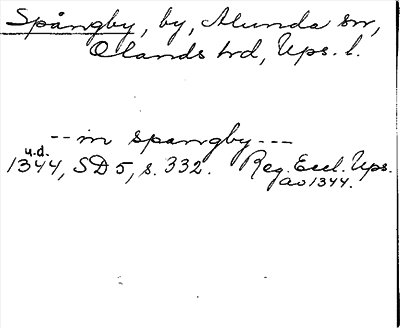 Spångby, by, Alunda sn,
Olands hrd, Ups. l.
-- in spangby ---
u.d.
1344, SD 5, s. 332. Reg. Eccl. Ups.
ao 1344.